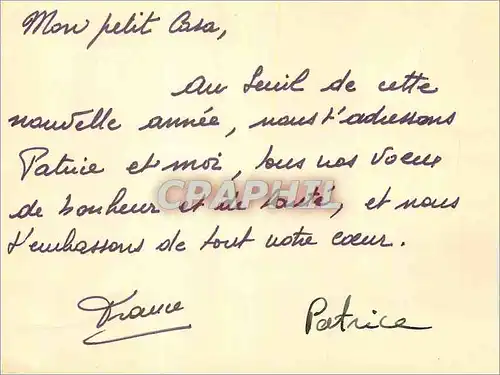 Mon petit Casa,
Au seuil de cette
nouvelle année, nous t'adressons
Patrice et moi, tous nos voeux
de bonheur et de santé, et nous
t'embrassons de tout notre coeur.
France Patrice
CRAPHIL